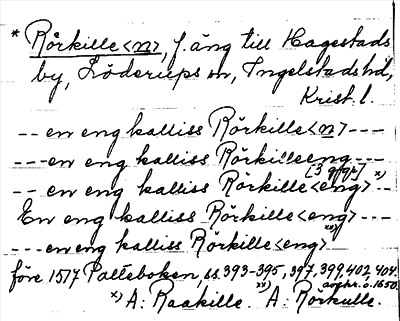 * Rörkille <n>, f. äng till Hagestads
by, Löderups sn, Ingelstads hd,
Krist. l.
-- en eng kalliss Rörkille <n> ---
--- en eng kalliss Rörkilleeng ---
[3 ggr]
-- en eng kalliss Rörkille <eng> x) --
En eng kalliss Rörkille <eng> ---
xx)
--- en eng kalliss Rörkille <eng>
före 1517 Palteboken, ss. 393-395, 397, 399, 402, 404.
avskr. o. 1650.
x) A: Raakille. xx) A: Rörkulle.